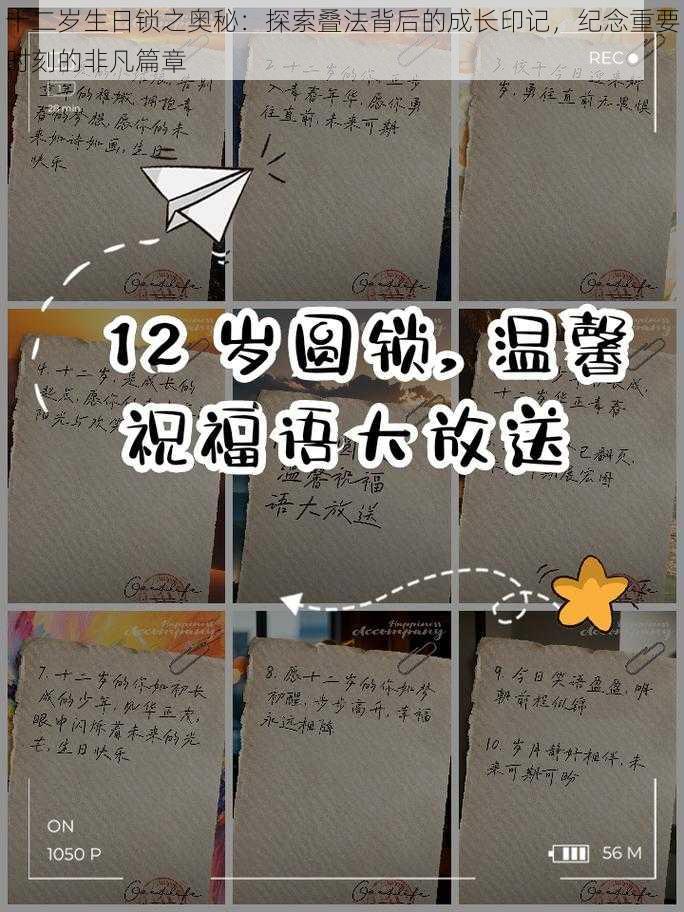 十二岁生日锁之奥秘：探索叠法背后的成长印记，纪念重要
时刻的非凡篇章
REC
28 min
告别
的稚嫩，拥抱青
春的梦想，愿你的未
来如诗如画，生日
快乐
2. 十二岁的你，正步
入青春年华，愿你勇
往直前，未来可期
3. 孩子今日迎来新
岁，勇往直前无畏惧
12 岁圆锁，温馨
祝福语大放送
4. 十二岁，是成长的
起点，愿你
阳光与欢笑
温馨祝福
语大放送
成，
十二岁华正青春
已翻页，
展宏图
Happiness
accompany
7. 十二岁的你如初长
成的少年，风华正茂，
眼中闪烁着未来的光
芒，生日快乐
Happiness
accompany
8. 愿十二岁的你如梦
初醒，步步高升，幸福
永远相随
Happiness
accompany
9. 今日笑语盈盈，明
朝前程似锦
10. 岁月静好相伴，未
来可期可盼
ON
1050 P
56 M